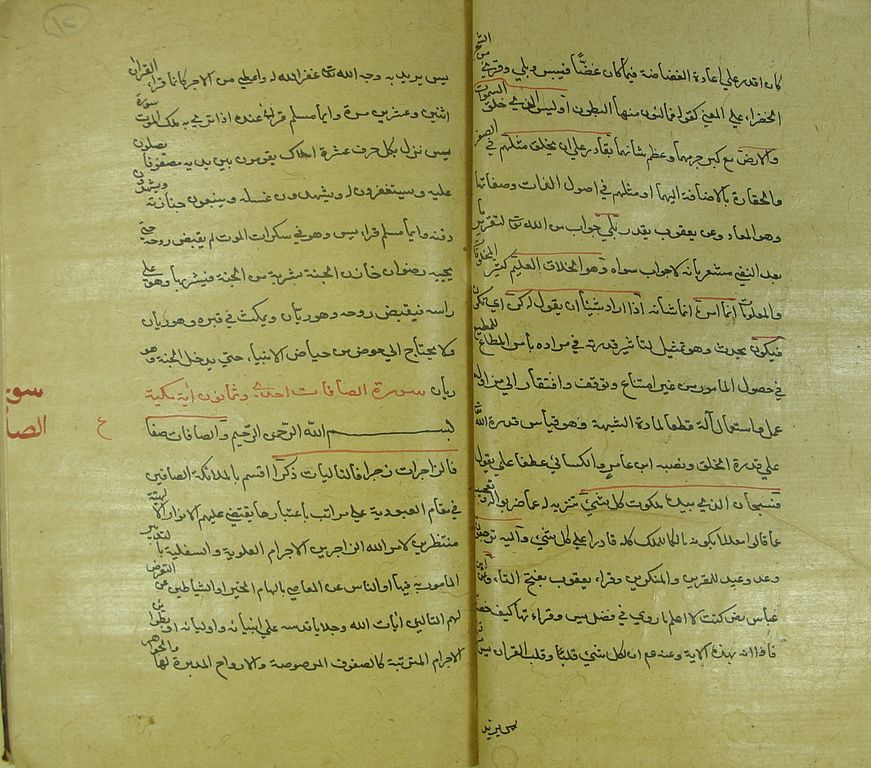 كان اقدر علي اعادة الغضاضة فيما كان غضًّا فيبس وبلي وقرئ من الشجر
الخضراء علي المعني كقوله فمالئون منها البطون اوليس الذي خلق السموات
والارض مع كبر جرمهما وعظم شانهما بقادر علي ان يخلق مثلهم في الصغر
والحقارة بالاضافة اليهما او مثلهم في اصول الذات وصفاتها
وهو المعاد وعن يعقوب يقدر بلي جواب من الله تعالى لتقرير ما
بعد النفي مشعر بانه لا جواب سواه وهو الخلاق العليم كثير المخلوقات
والمعلومات انما امره انما شانه اذا اراد شيئا ان يقول له كن اي تكون
فيكون يحدث وهو تمثيل لتاثير قدرته في مراده بامر المطاع للمطيع
في حصول المامور من غير امتناع وتوقف وافتقار الي مزاولة
عمل واستعمال آلة قطعا لمادة الشبهة وهو قياس قدرة الله
علي قدرة الخلق ونصبه ابن عامر والكسائي عطفا علي يقول
فسبحان الذي بيده ملكوت كل شيء تنزيه له عما ضربوا له وتعجيب
عما قالوا معللا بكونه مالكا للملك كله قادرا علي كل شيء واليه ترجعون
وعد ووعيد للمقرين والمنكرين وقراء يعقوب بفتح التاء وعن ابن
عباس رض كنت لا اعلم ما روي في فضل يس وقراءتها كيف خصت
فاذا انه بهذه الاية وعنه عم ان لكل شيء قلبا وقلب القران يس
يس يريد
يس يريد به وجه الله تعالى غفر الله له واعطي من الاجر كانما قراء القران
اثنين وعشرين مرة وايما مسلم قرائ عنده اذا نزل به ملك الموت سورة
يس نزل بكل حرف عشرة املاك يقومون بين يديه صفوفا يصلون
عليه ويستغفرون له ويشهدون غسله ويتبعون جنازته ويشهدون
دفنه وايما مسلم قراء يس وهو في سكرات الموت لم يقبض روحه حتى
يجيئه رضوان خازن الجنة بشربة من الجنة فيشربها وهو علي
راسه فيقبض روحه وهو ريان ويمكث في قبره وهو ريان
ولا يحتاج الي حوض من حياض الانبياء حتي يدخل الجنة وهو
ريان سورة الصافات احدى وثمانون اية مكية
بسم الله الرحمن الرحيم والصافات صفا
فالزاجرات زجرا فالتاليات ذكرا اقسم بالملائكة الصافين
في مقام العبودية علي مراتب باعتبارها يفيض عليهم الانوار الالهية
منتظرين لامر الله الزاجرين الاجرام العلوية والسفلية بالتدبير
المامور به فيها او الناس عن المعاصي بالهام الخير او الشياطين عن التعرض
لهم التالين ايات الله وجلايا قدسه علي انبيائه واوليائه او بطوائف
الاجرام المترتبة كالصفوف المرصوصة والارواح المدبرة لها والجواهر
سو
الصا